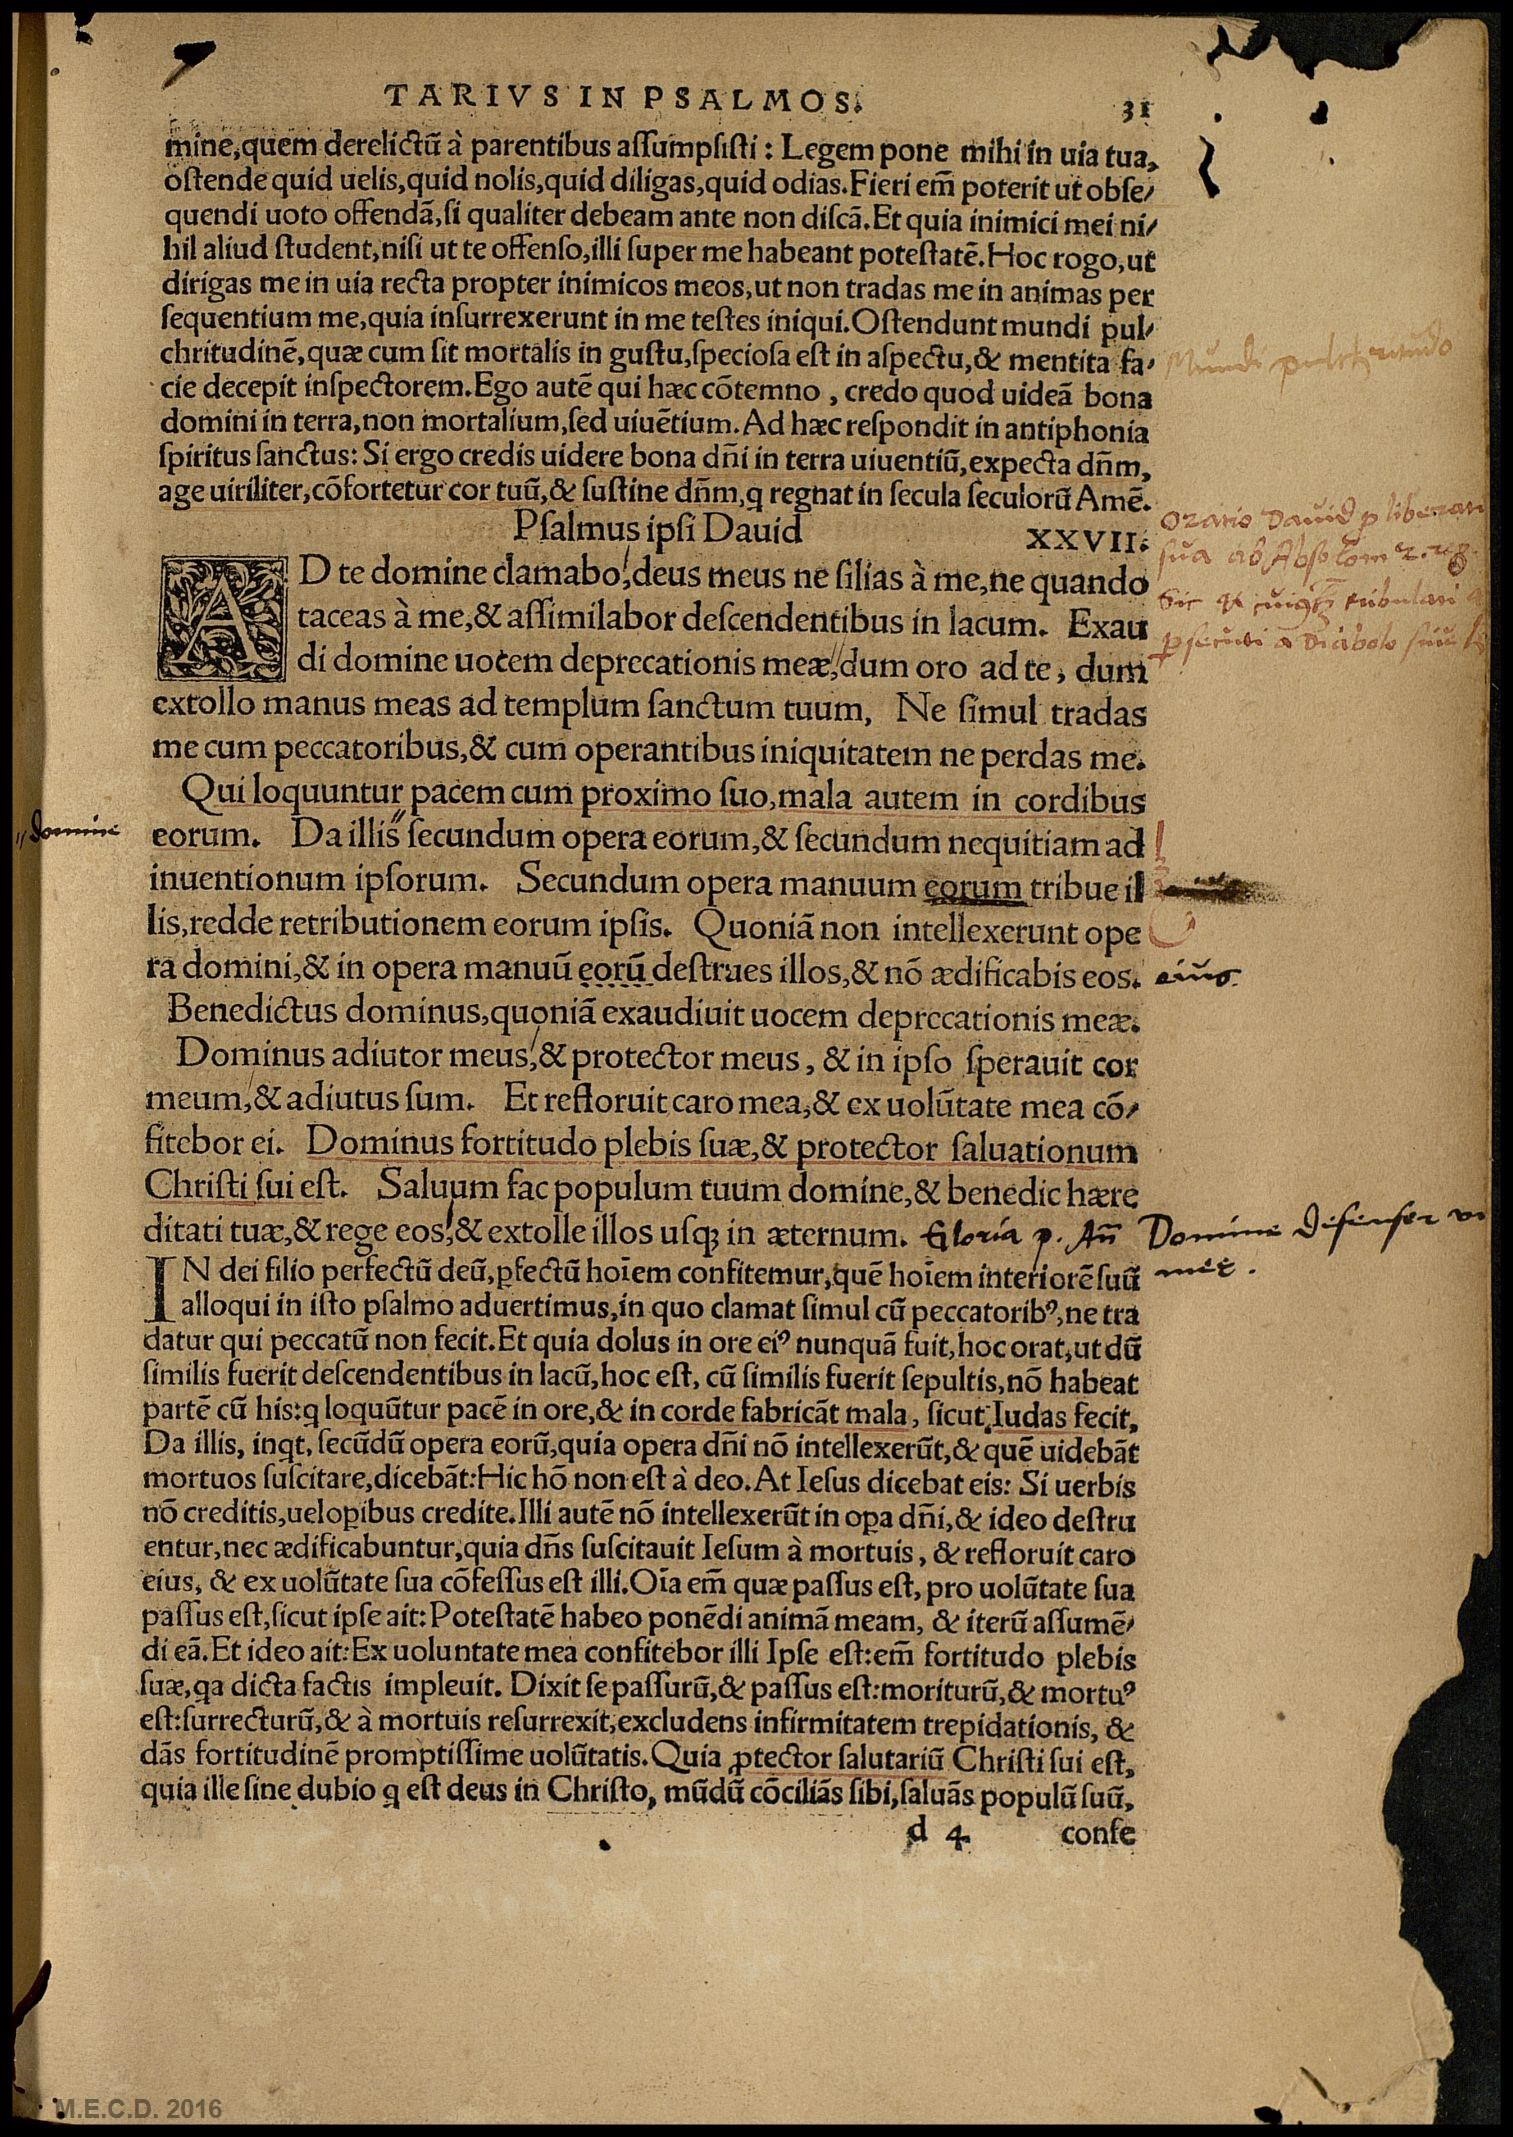 TARIVS IN PSALMOS. 31
mine,quem derelictū à parentibus assumpsisti : Legem pone mihi in uia tua,
ostende quid uelis,quid nolis,quid diligas,quid odias.Fieri em̄ poterit ut obse/
quendi uoto offendā,si qualiter debeam ante non discā.Et quia inimici mei ni/
hil aliud student,nisi ut te offenso,illi super me habeant potestatē.Hoc rogo,ut
dirigas me in uia recta propter inimicos meos,ut non tradas me in animas per
sequentium me,quia insurrexerunt in me testes iniqui.Ostendunt mundi pul/
chritudinē,quæ cum sit mortalis in gustu,speciosa est in aspectu,& mentita fa/
Mundi pulchritudo
cie decepit inspectorem.Ego autē qui hæc cōtemno , credo quod uideā bona
domini in terra,non mortalium,sed uiuētium.Ad hæc respondit in antiphonia
spiritus sanctus: Si ergo credis uidere bona dn̄i in terra uiuentiū,expecta dn̄m,
age uiriliter,cōfortetur cor tuū,& sustine dn̄m,q regnat in secula seculorū Amē.
Psalmus ipsi Dauid XXVII.
Oratio Dauid p liberati
sua ab Absolom 2. reg.
tribulati
psecuti a Diabolo
AD te domine clamabo,deus meus ne silias à me,ne quando
taceas à me,& assimilabor descendentibus in lacum. Exau
di domine uocem deprecationis meæ,dum oro ad te, dum
extollo manus meas ad templum sanctum tuum, Ne simul tradas
me cum peccatoribus,& cum operantibus iniquitatem ne perdas me.
Qui loquuntur pacem cum proximo suo,mala autem in cordibus
domine
eorum. Da illis secundum opera eorum,& secundum nequitiam ad
inuentionum ipsorum. Secundum opera manuum eorum tribue il
lis,redde retributionem eorum ipsis. Quoniā non intellexerunt ope
ra domini,& in opera manuū eorū destrues illos,& nō ædificabis eos.
eius.
Benedictus dominus,quoniā exaudiuit uocem deprecationis meæ.
Dominus adiutor meus,& protector meus, & in ipso sperauit cor
meum,& adiutus sum. Et refloruit caro mea,& ex uolūtate mea cō/
fitebor ei. Dominus fortitudo plebis suæ,& protector saluationum
Christi sui est. Saluum fac populum tuum domine,& benedic hære
ditati tuæ,& rege eos,& extolle illos usq; in æternum. Gloria p. Añ Domine defensor vi
meę.
IN dei filio perfectū deū,pfectū hoīem confitemur,quē hoīem interiorē suū
alloqui in isto psalmo aduertimus,in quo clamat simul cū peccatorib⁹,ne tra
datur qui peccatū non fecit.Et quia dolus in ore ei⁹ nunquā fuit,hoc orat,ut dū
similis fuerit descendentibus in lacū,hoc est, cū similis fuerit sepultis,nō habeat
partē cū his:q loquūtur pacē in ore,& in corde fabricāt mala, sicut Iudas fecit,
Da illis, inqt, secūdū opera eorū,quia opera dn̄i nō intellexerūt,& quē uidebāt
mortuos suscitare,dicebāt:Hic hō non est à deo.At Iesus dicebat eis: Si uerbis
nō creditis,uel opibus credite.Illi autē nō intellexerūt in opa dn̄i,& ideo destru
entur,nec ædificabuntur,quia dn̄s suscitauit Iesum à mortuis, & refloruit caro
eius, & ex uolūtate sua cōfessus est illi.Oīa em̄ quæ passus est, pro uolūtate sua
passus est,sicut ipse ait: Potestatē habeo ponēdi animā meam, & iterū assumē/
di eā.Et ideo ait:Ex uoluntate mea confitebor illi Ipse est:em̄ fortitudo plebis
suæ,qa dicta factis impleuit. Dixit se passurū,& passus est:moriturū,& mortu⁹
est:surrecturū,& à mortuis resurrexit,excludens infirmitatem trepidationis, &
dās fortitudinē promptissime uolūtatis.Quia ptector salutariū Christi sui est,
quia ille sine dubio q est deus in Christo, mūdū cōciliās sibi,saluās populū suū,
d 4 confe
M.E.C.D. 2016